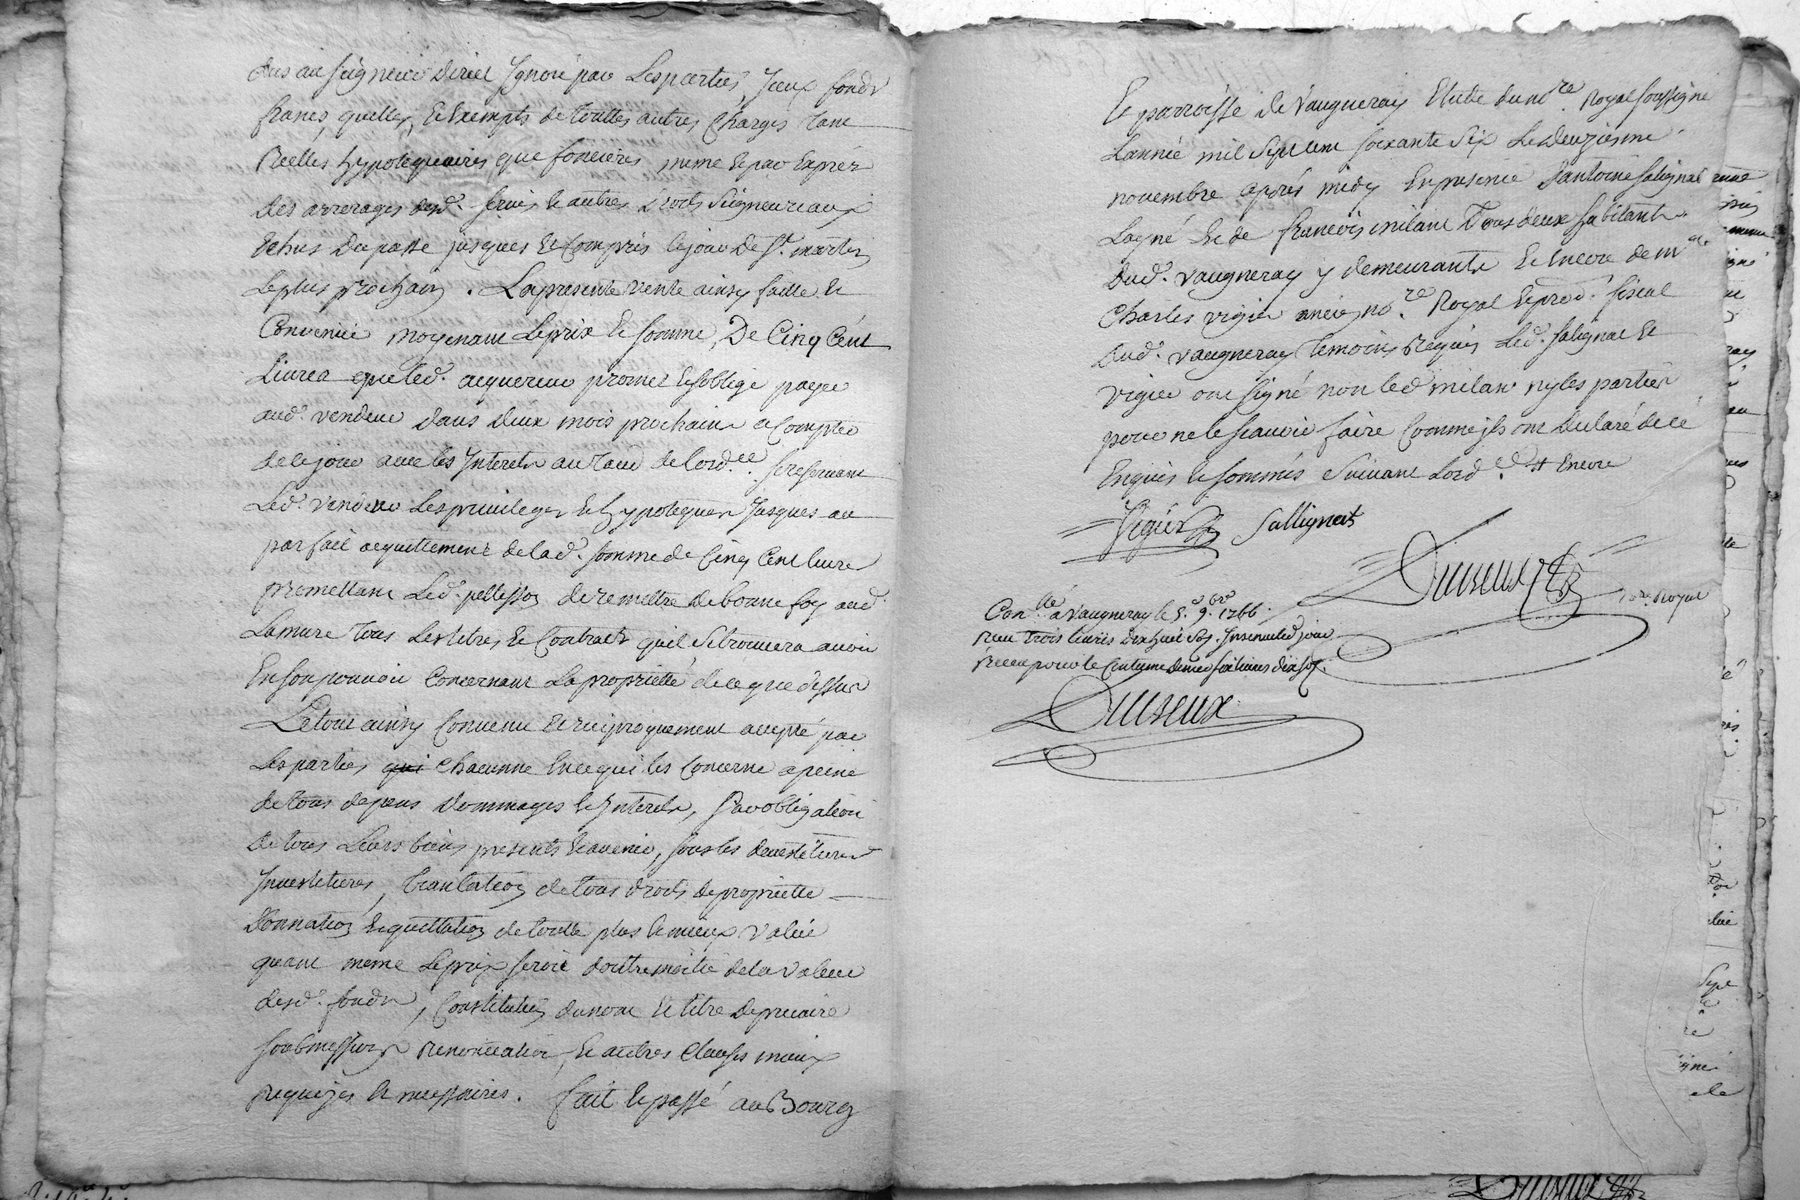 dus au seigneur direct ignoré par les parties, yceux fonds
francs, quittes, et exempts de touttes autres charges tant
reelles hypotequaires que foncieres meme et par exprés
des arrerages desd. servis et autres droits seigneuriaux
echus du passé jusques et compris le jour de St. martin
le plus prochain. La presente vente ainsy faitte et
convenue moyenant le prix et somme, De Cinq Cent
Livres que led. acquereur promet et soblige payer
aud. vendeur dans deux mois prochains a compter
de ce jour avec les interets au taux de lord.ce se reservant
Led. vendeur Les privileges et hypoteques jusques au
parfait acquittement de lad. somme de Cinq Cent livres
promettant Led. pellesson de remettre de bonne foy aud.
Lamure tous les titres et contrats quil se trouvera avoir
En son pouvoir concernant la proprietté de ce que dessus
Le tout ainsy convenu et reciproquement accepté par
Les parties qui chacunne en ce qui les concerne a peine
de tous depens dommages et interets, par obligation
de tous Leurs biens presents et avenir, sous les devestitures
Investitures, translation de tous droits de proprietté
Donnation et quittation de toutte plus et mieux value
quant meme le prix seroit d'outre moitié de la valeur
desd. fonds, constitution du nom et titre de precaire
soubmissions renonciation, et autres clauses mieux
requizes et necessaires. fait et passé au Bourg
Et parroisse de Vaugneray Etude du no.re Royal soussigné
Lannée mil sept cent soixante six Le deuzieme
novembre aprés midy En presence d'antoine salignat
Lagné et de francois milan Tous deux habitants
dud. vaugneray y demeurants et encore de m.e
Charles vigier ancien no.re Royal et proc. fiscal
dud. vaugneray temoins requis Led. salignat et
vigier ont signé non led milan ny les parties
pour ne le scavoir faire comme ils ont declaré de ce
Enquis et sommés suivant Lord.ce # Encore
Vigier Sallignat
Duseux no.re Royal
Con.llé a Vaugneray le 5.e 9.bre 1766.
reçu trois livres dix huit sols. Insinué led jour
Duseux